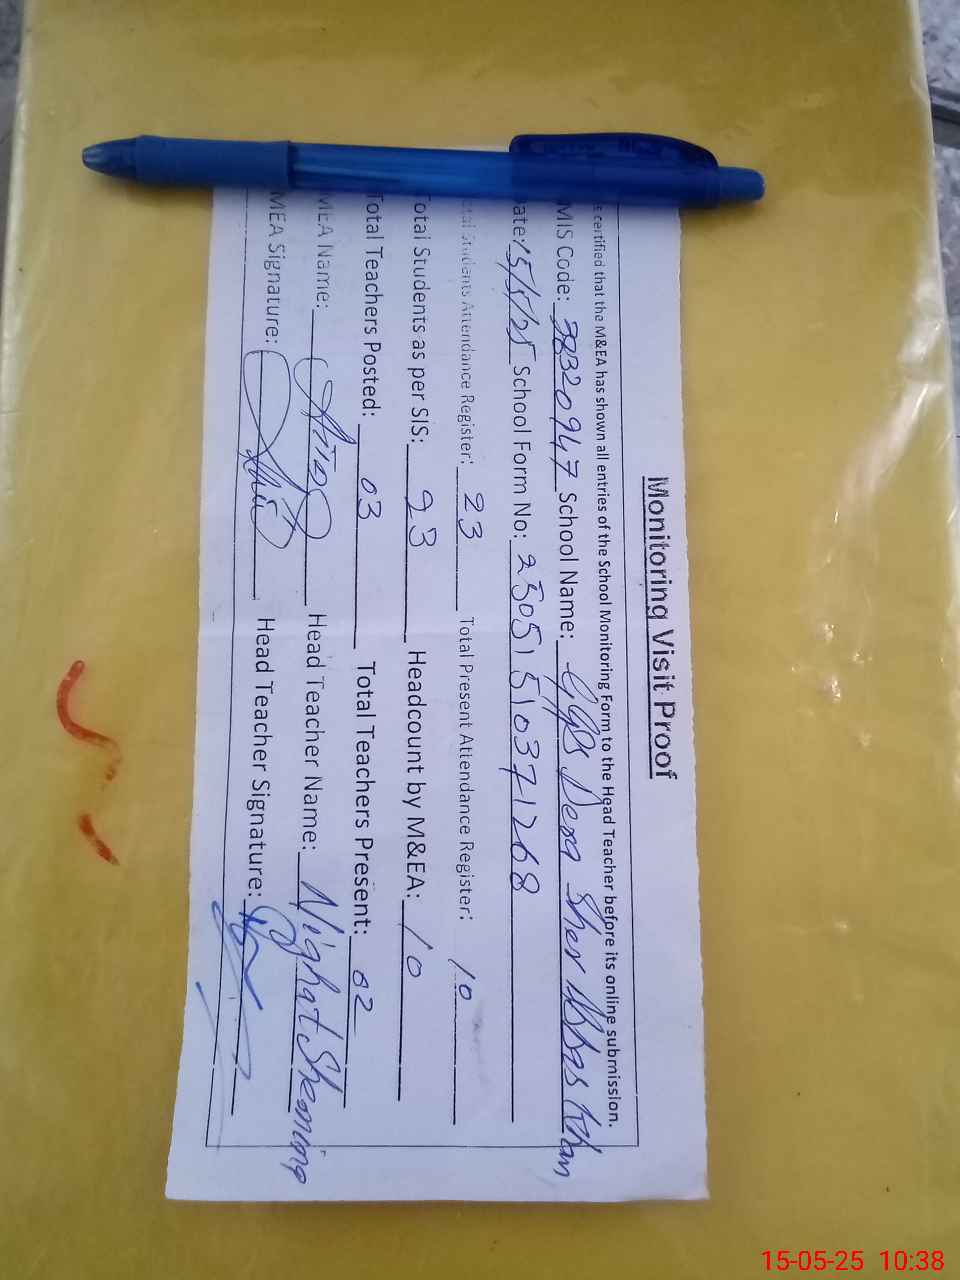 Monitoring Visit Proof
certified that the M&EA has shown all entries of the School Monitoring Form to the Head Teacher before its online submission.
MIS Code: 38320947 School Name: GGPS Dera Sher Abbas Khan
ate: 15/5/25 School Form No: 23051510371268
tal Students Attendance Register: 23 Total Present Attendance Register: 10
otal Students as per SIS: 23 Headcount by M&EA: 10
Total Teachers Posted: 03 Total Teachers Present: 02
MEA Name: Head Teacher Name: Nighat Shamim
MEA Signature: Head Teacher Signature:
15-05-25 10:38